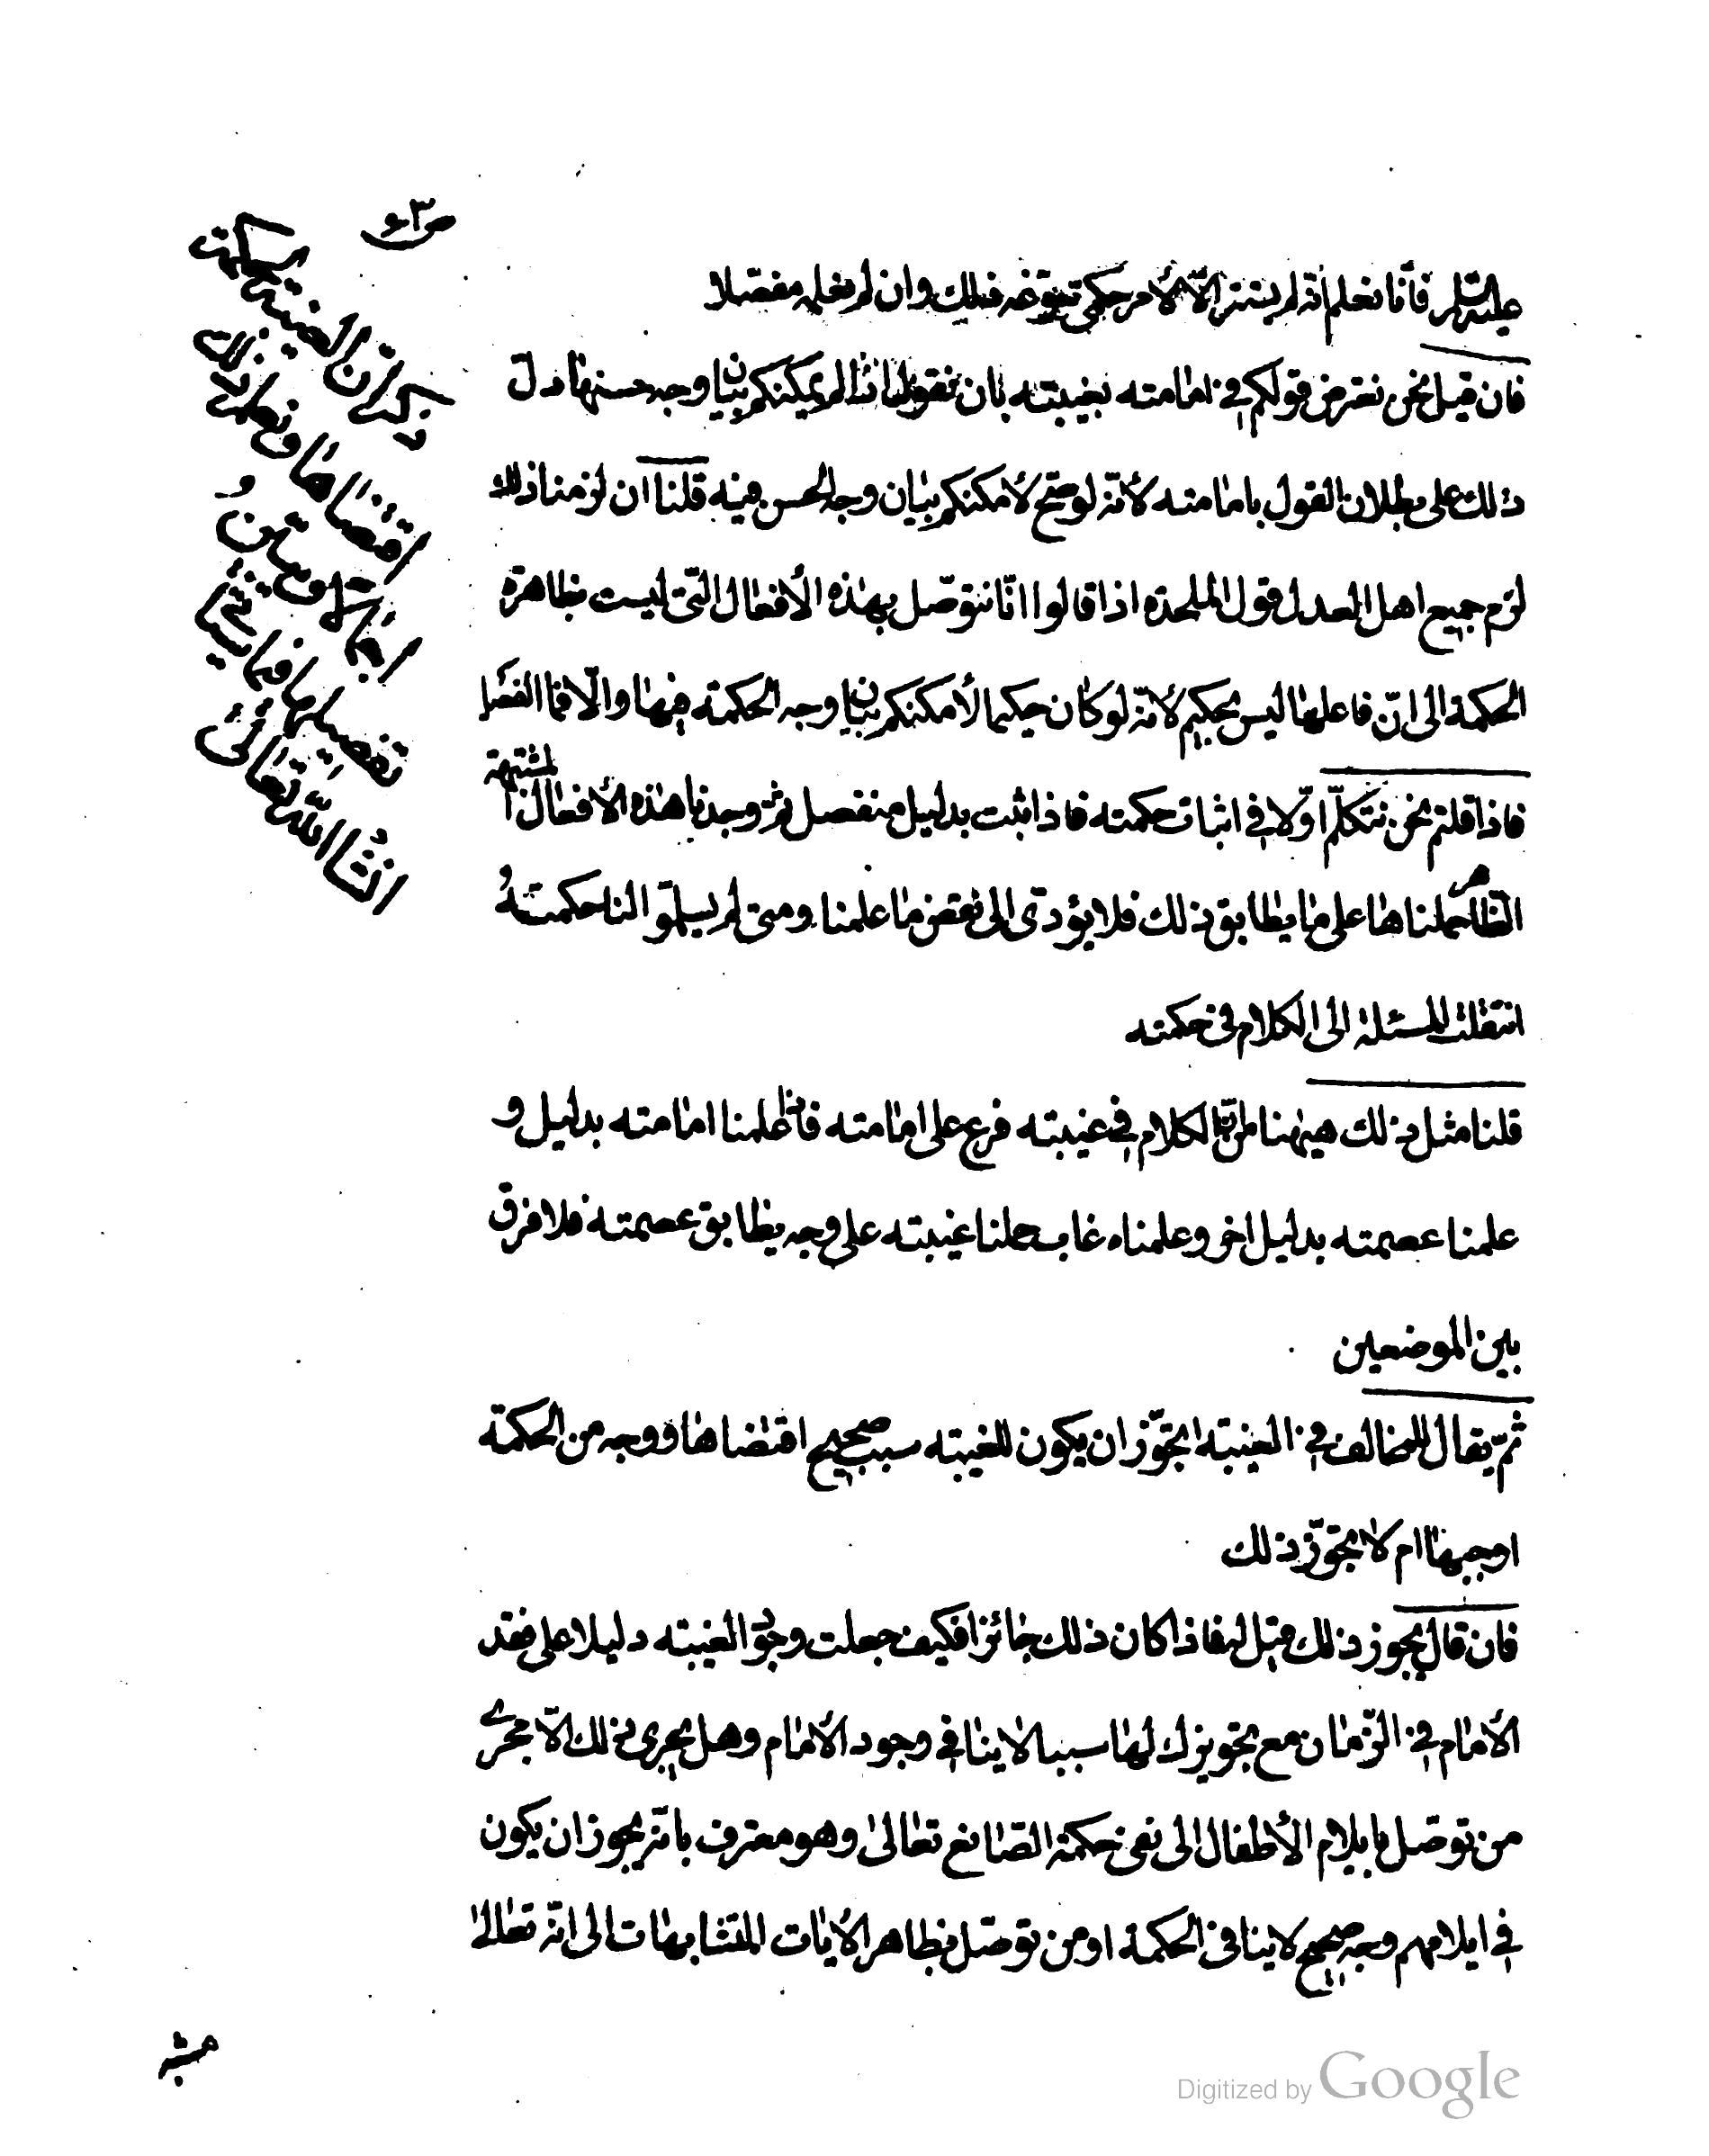 ص٣
عليه السلم فأنا نعلم انه لم يستتر الّا لأمر حكمى تسوغه ذلك وان لم نعلمه مفصلا
فان قيل نحن نعترض قولكم فى امامته بغيبته بان نقول اذا لم يمكنكم بيان وجه حسنها دل
ذلك على بطلان القول بامامته لأنّه لو صح لأمكنكم بيان وجه الحسن فيه قلنا ان لزمنا ذلك
لزم جميع اهل العدل قول الملحدة اذا قالوا انّا نتوصّل بهذه الأفعال التّى ليست بظاهرة
الحكمة الى انّ فاعلها ليس بحكيم لأنّه لو كان حكيما لأمكنكم بيان وجه الحكمة فيها والّا فما الفصل
فاذا قلتم نحن نتكلّم اوّلا فى اثبات حكمته فاذا ثبت بدليل منفصل ثم وجدنا هذه الأفعال المشتبهة
الظاهر حملناها على ما يطابق ذلك فلا يؤدّى الى نقض ما علمنا ومتى لم يسلموا لنا حكمتهُ
انتقلت المسئلة الى الكلام فى حكمته
قلنا مثل ذلك هيهنا من انّ الكلام فى غيبته فرع على امامته فاذا علمنا امامته بدليل و
علمنا عصمته بدليل اخر وعلمناه غاب حملنا غيبته على وجه يطابق عصمته فلا فرق
بين الموضعين
ثمّ يقال للمخالف فى الغيبته اتجوّز ان يكون للغيبته سبب صحيح اقتضاها ووجه من الحكمة
اوجبها ام لا تجوّز ذلك
فان قال يجوز ذلك قيل له فاذا كان ذلك جائزا فكيف جعلت وجود الغيبته دليلا على فقد
الأمام فى الزّمان مع تجويزك لها سببا لا ينافى وجود الأمام وهل يجرى ذلك الّا مجرى
من توصّل بايلام الأطفال الى نفى حكمة الصّانع تعالى وهو معترف بانّه يجوز ان يكون
فى ايلامهم وجه صحيح لا ينافى الحكمة او من توصّل بظاهر الأيات المتشابهات الى انّه تعالى
انشا اللّه تعالى